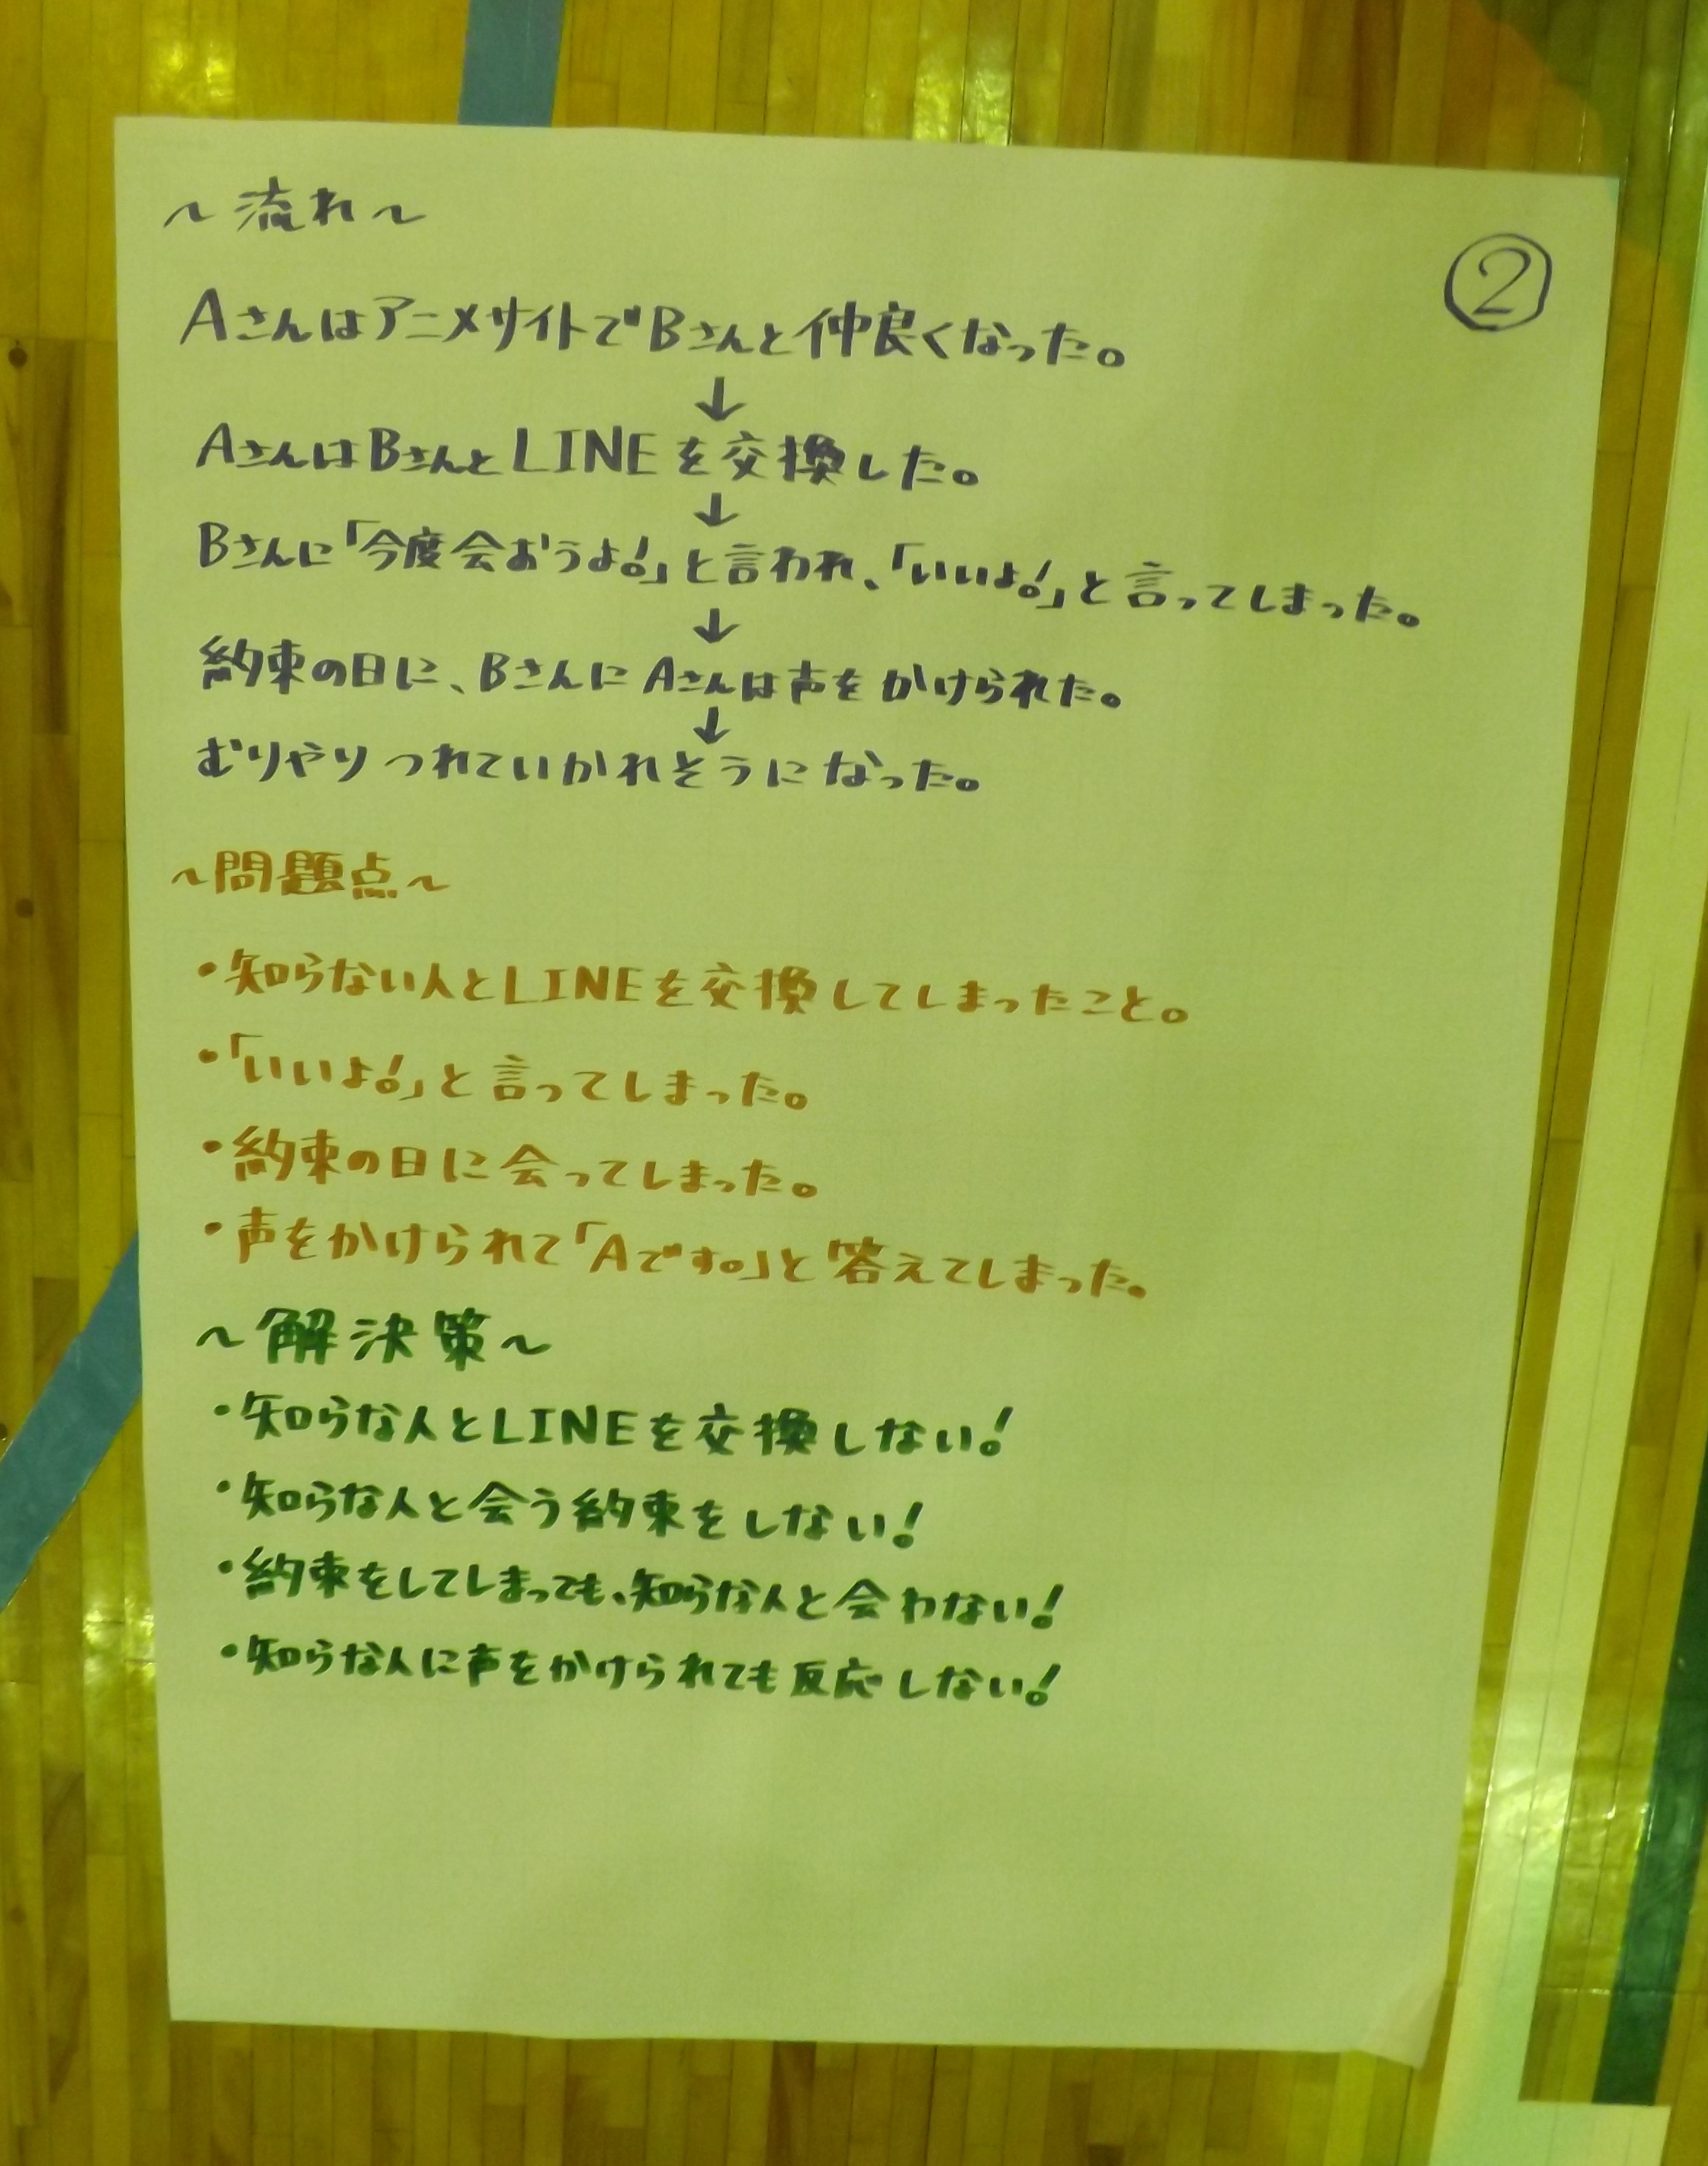 ～流れ～
②
Aさんはアニメサイトで Bさんと仲良くなった。
↓
AさんはBさんとLINEを交換した。
↓
Bさんに「今度会おうよ!」と言われ、「いいよ!」と言ってしまった。
↓
約束の日に、BさんにAさんは声をかけられた。
↓
むりやりつれていかれそうになった。
～問題点～
・知らない人とLINEを交換してしまったこと。
・「いいよ!」と言ってしまった。
・約束の日に会ってしまった。
・声をかけられて「Aです。」と答えてしまった。
～解決策～
・知らな人とLINEを交換しない!
・知らな人と会う約束をしない!
・約束をしてしまっても、知らな人と会わない!
・知らな人に声をかけられても反応しない!